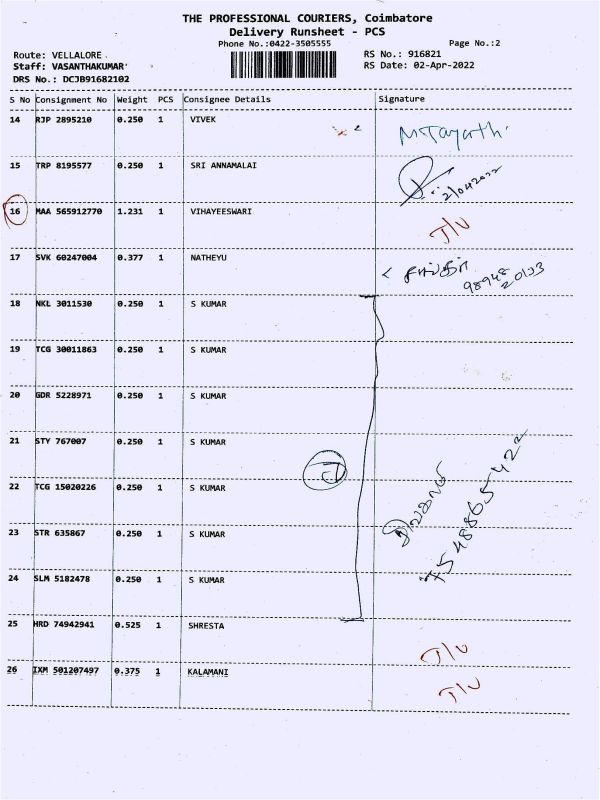 THE PROFESSIONAL COURIERS, Coimbatore
Delivery Runsheet - PCS
Phone No.:0422-3505555
Page No.:2
Route: VELLALORE
RS No.: 916821
Staff: VASANTHAKUMAR
RS Date: 02-Apr-2022
DRS No.: DCJB91682102
S No Consignment No Weight PCS Consignee Details Signature
14 RJP 2895210 0.250 1 VIVEK
15 TRP 8195577 0.250 1 SRI ANNAMALAI
2/04/2022
16 MAA 565912770 1.231 1 VIHAYEESWARI
17 SVK 60247004 0.377 1 NATHEYU
18 NKL 3011530 0.250 1 S KUMAR
19 TCG 30011863 0.250 1 S KUMAR
20 GDR 5228971 0.250 1 S KUMAR
21 STY 767007 0.250 1 S KUMAR
22 TCG 15020226 0.250 1 S KUMAR
23 STR 635867 0.250 1 S KUMAR
24 SLM 5182478 0.250 1 S KUMAR
7548865422
25 HRD 74942941 0.525 1 SHRESTA
26 IXM 501207497 0.375 1 KALAMANI